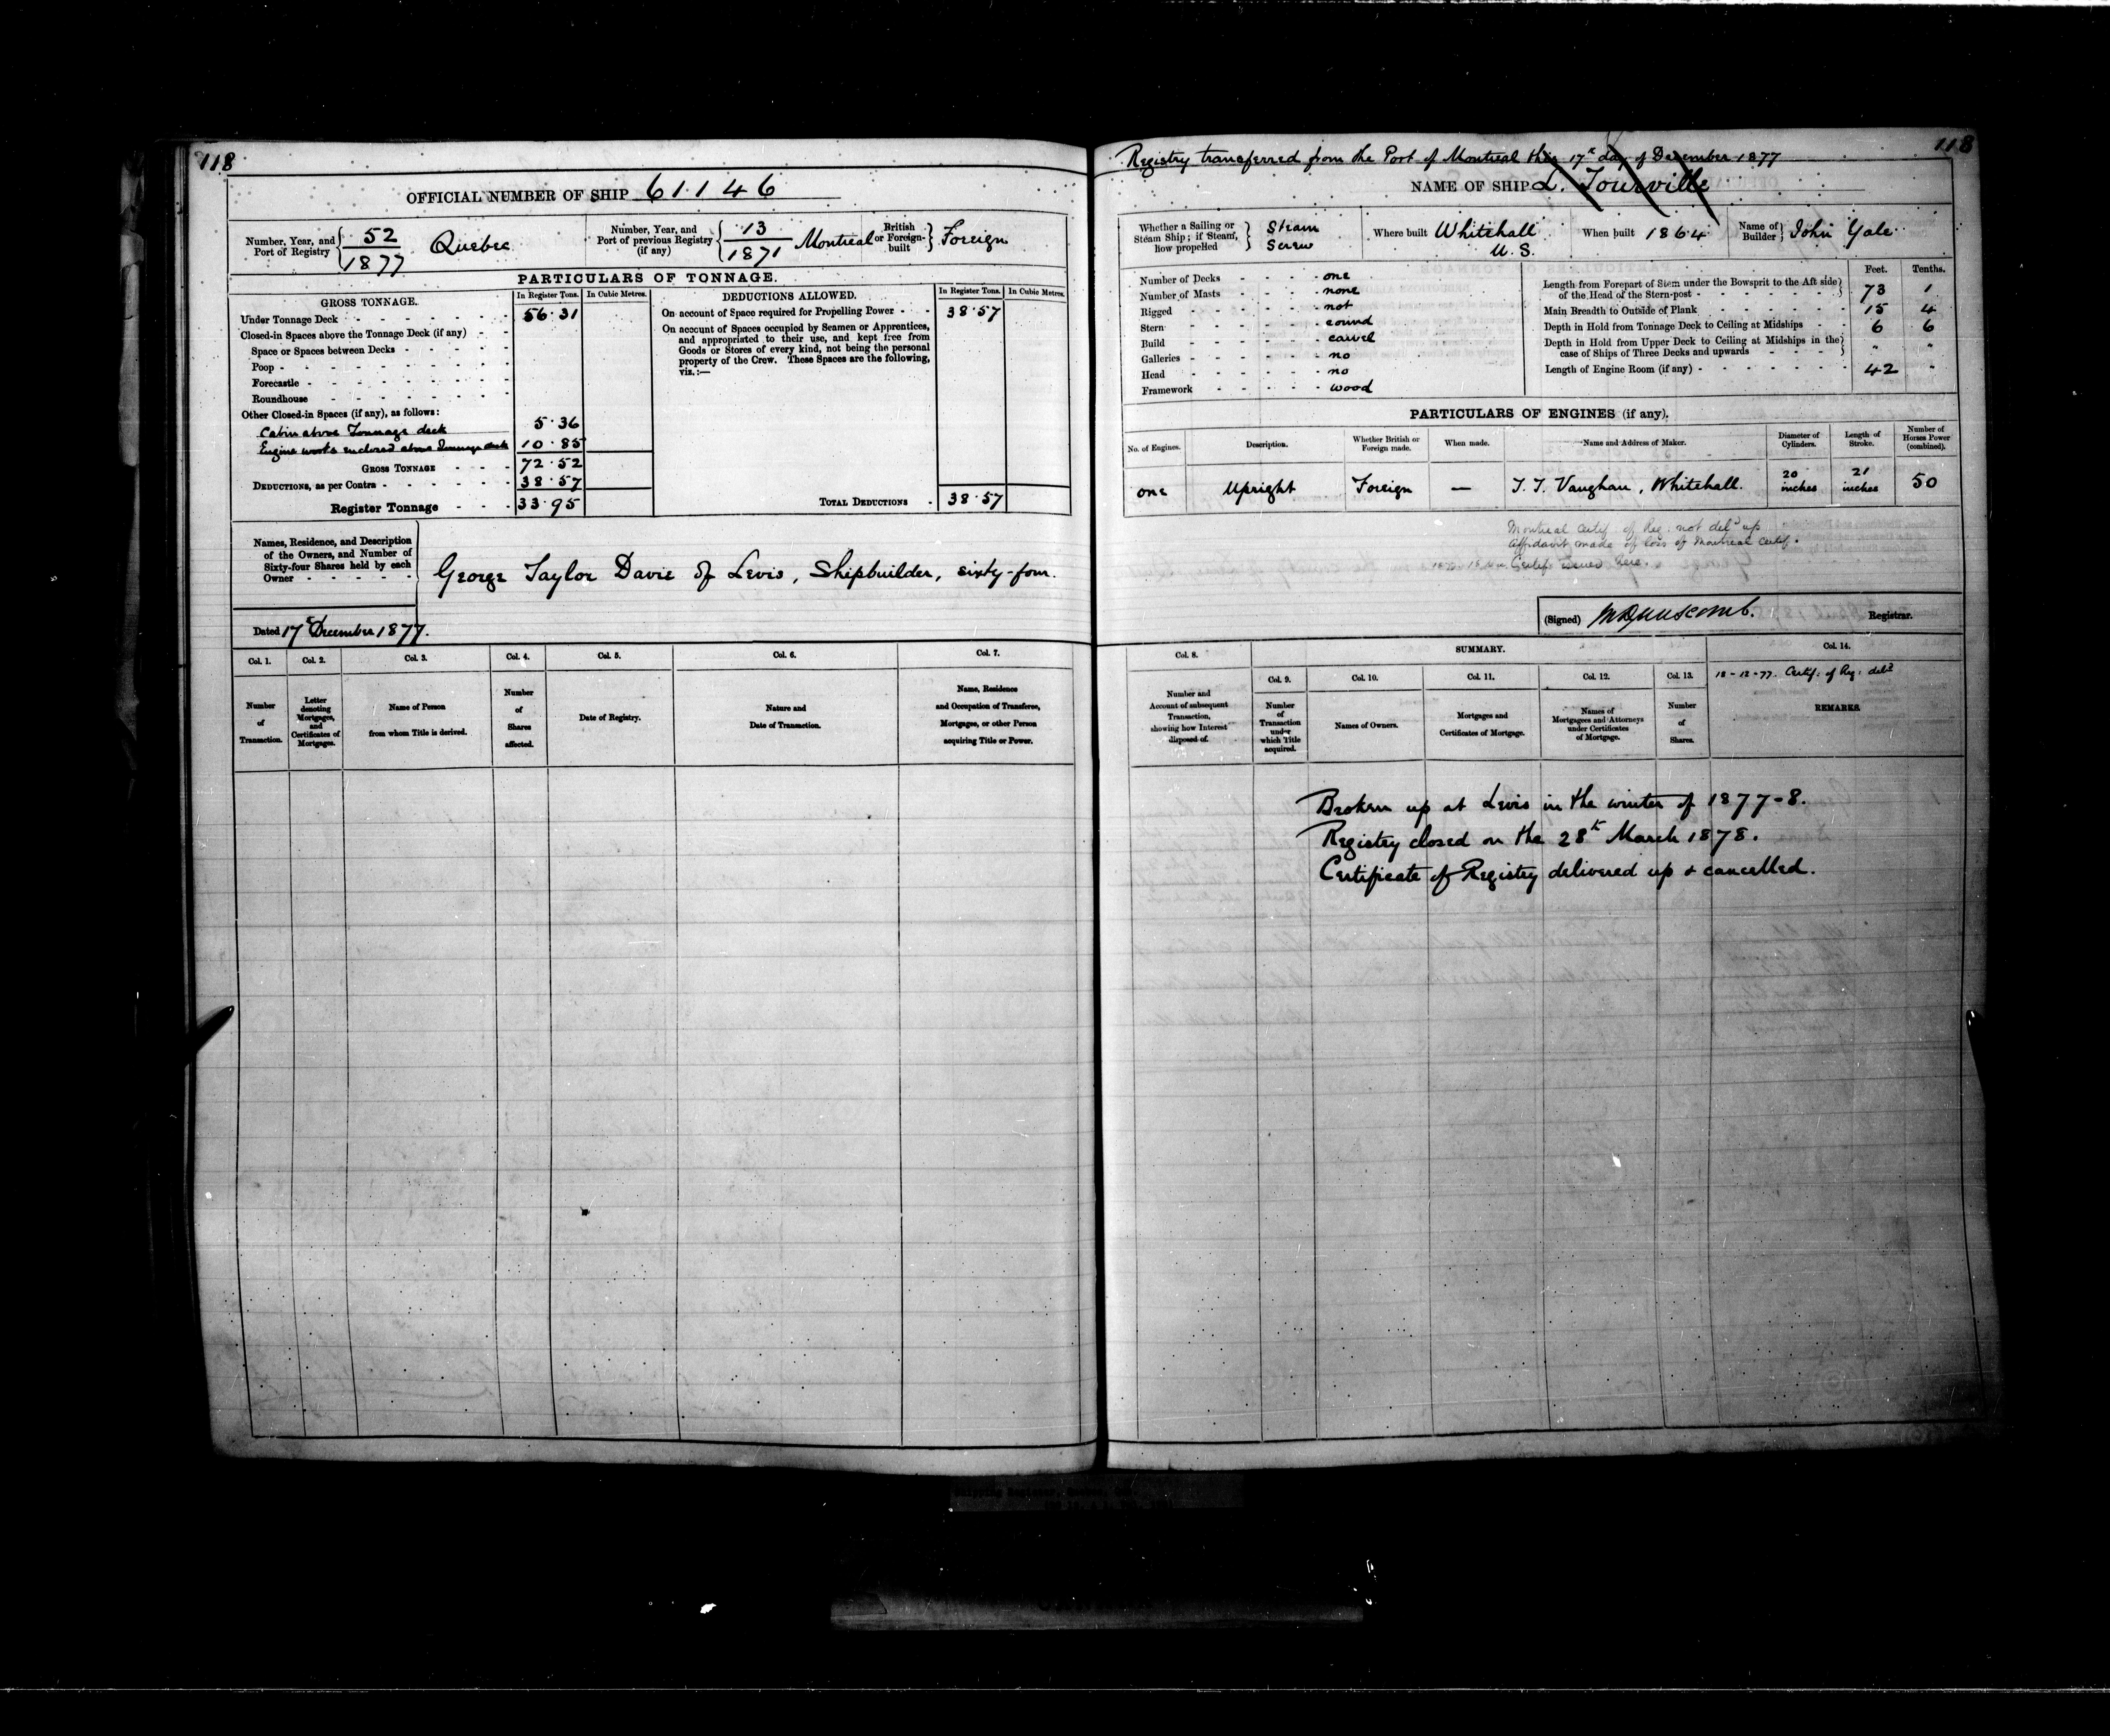 118
OFFICIAL NUMBER OF SHIP 61146
Number, Year, and Port of Registry { 52 / 1877 Quebec
Number, Year, and Port of previous Registry (if any) { 13 / 1871 Montreal
British or Foreign-built } Foreign
PARTICULARS OF TONNAGE.
GROSS TONNAGE. In Register Tons. In Cubic Metres.
Under Tonnage Deck - - - - - - 56.31
Closed-in Spaces above the Tonnage Deck (if any) - -
Space or Spaces between Decks - - - - - -
Poop - - - - - - - -
Forecastle - - - - - - -
Roundhouse - - - - - -
Other Closed-in Spaces (if any), as follows:
Cabin above Tonnage deck 5.36
Engine works enclosed above Tonnage deck 10.85
GROSS TONNAGE - - - 72.52
DEDUCTIONS, as per Contra - - - - - - 38.57
Register Tonnage - - - 33.95
DEDUCTIONS ALLOWED. In Register Tons. In Cubic Metres.
On account of Space required for Propelling Power - - 38.57
On account of Spaces occupied by Seamen or Apprentices,
and appropriated to their use, and kept free from
Goods or Stores of every kind, not being the personal
property of the Crew. These Spaces are the following,
viz.:—
TOTAL DEDUCTIONS - 38.57
Names, Residence, and Description
of the Owners, and Number of
Sixty-four Shares held by each
Owner - - - - -
George Taylor Davie of Levis, Shipbuilder, sixty-four.
Dated 17th December 1877.
Col. 1. Col. 2. Col. 3. Col. 4. Col. 5. Col. 6. Col. 7.
Number of Transaction.
Letter denoting Mortgages, and Certificates of Mortgages.
Name of Person from whom Title is derived.
Number of Shares affected.
Date of Registry.
Nature and Date of Transaction.
Name, Residence and Occupation of Transferee, Mortgagee, or other Person acquiring Title or Power.
118
Registry transferred from the Port of Montreal this 17th day of December 1877
NAME OF SHIP L. Tourville
Whether a Sailing or Steam Ship; if Steam, how propelled } Steam Screw
Where built Whitehall U.S.
When built 1864
Name of Builder } John Yale
Number of Decks - - - - one
Number of Masts - - - - none
Rigged - - - - - - not
Stern - - - - - - round
Build - - - - - - carvel
Galleries - - - - - - no
Head - - - - - - no
Framework - - - - - wood
Feet. Tenths.
Length from Forepart of Stem under the Bowsprit to the Aft side
of the Head of the Stern-post - - - - - - 73 1
Main Breadth to Outside of Plank - - - - - - 15 4
Depth in Hold from Tonnage Deck to Ceiling at Midships - - 6 6
Depth in Hold from Upper Deck to Ceiling at Midships in the
case of Ships of Three Decks and upwards - - - - " "
Length of Engine Room (if any) - - - - - - 42 -
PARTICULARS OF ENGINES (if any).
No. of Engines. Description. Whether British or Foreign made. When made. Name and Address of Maker. Diameter of Cylinders. Length of Stroke. Number of Horses Power (combined).
one Upright Foreign — T. T. Vaughan, Whitehall. 20 inches 21 inches 50
Montreal Certif of Reg: not deld up
Affidavit made of loss of Montreal Certif.
Certif issued here.
(Signed) Registrar.
Col. 8. SUMMARY. Col. 14.
Col. 9. Col. 10. Col. 11. Col. 12. Col. 13.
18-12-77. Certif: of Reg: deld
Number and Account of subsequent Transaction, showing how Interest disposed of.
Number of Transaction under which Title acquired.
Names of Owners.
Mortgages and Certificates of Mortgage.
Names of Mortgagees and Attorneys under Certificates of Mortgage.
Number of Shares.
REMARKS.
Broken up at Levis in the winter of 1877-8.
Registry closed on the 28th March 1878.
Certificate of Registry delivered up & cancelled.